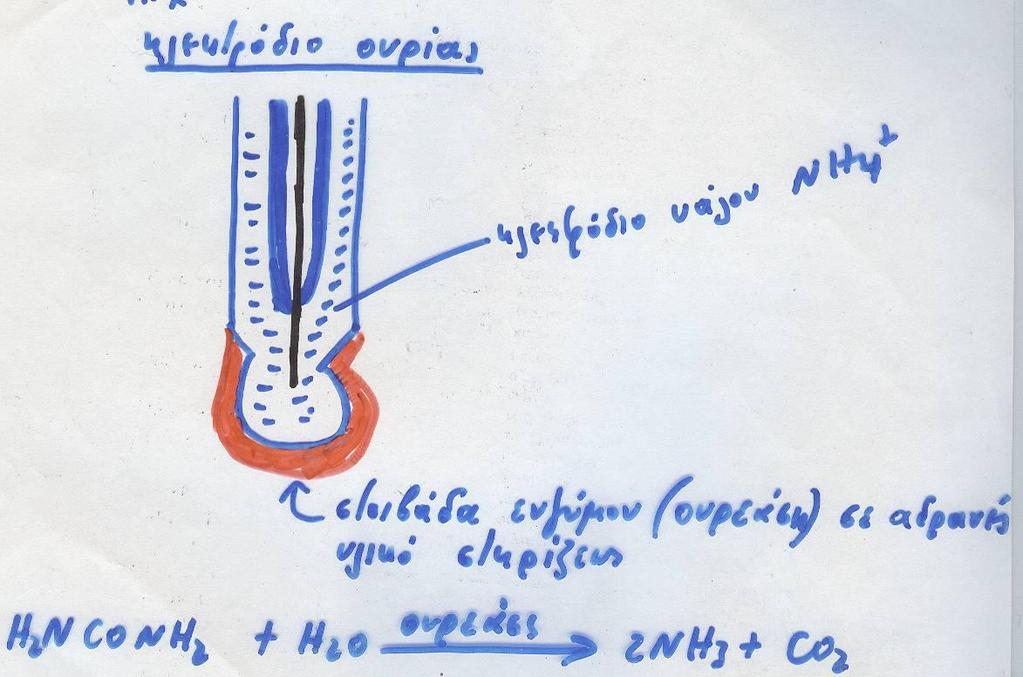 ηλεκτρόδιο ουρίας
ηλεκτρόδιο υάλου NH4+
στιβάδα ενζύμου (ουρεάση) σε αδρανές
υλικό στηρίξεως
H2NCONH2 + H2O ουρεάσς 2NH3 + CO2